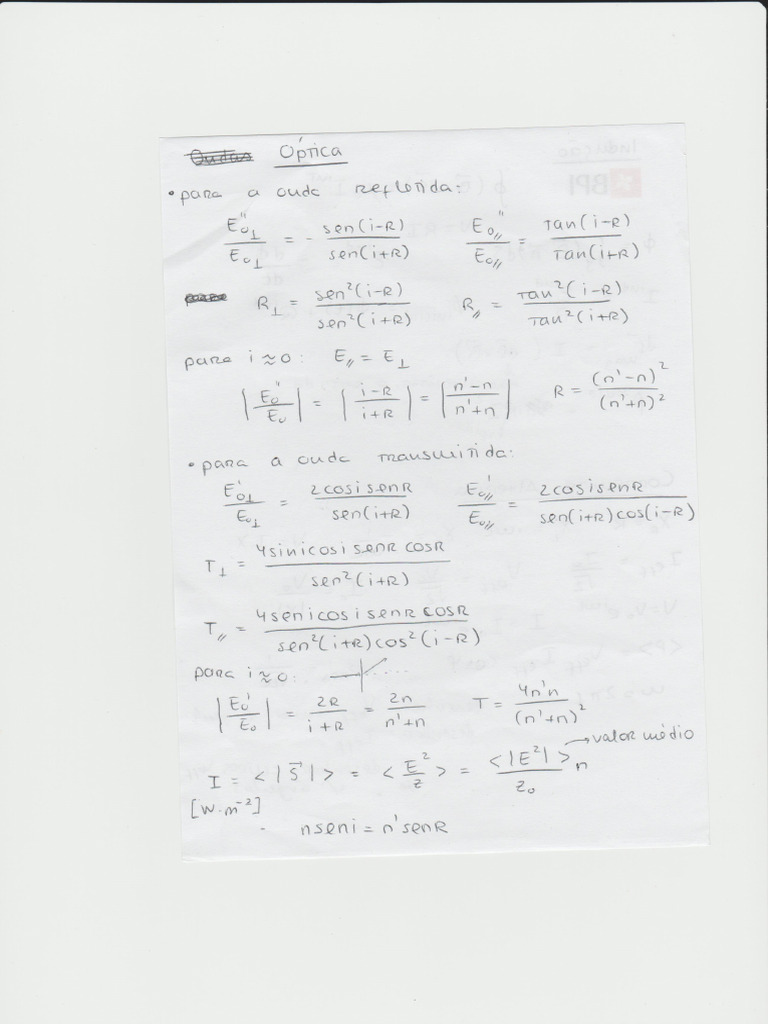 Ondas Óptica
• para a onda refletida:
E₀⊥''/E₀⊥ = - sen(i-R)/sen(i+R)    E₀//''/E₀// = Tan(i-R)/Tan(i+R)
para R⊥ = sen²(i-R)/sen²(i+R)    R// = Tan²(i-R)/Tan²(i+R)
para i≈0: E// = E⊥
|E₀''/E₀| = |i-R/i+R| = |n'-n/n'+n|    R = (n'-n)²/(n'+n)²
• para a onda transmitida:
E₀⊥'/E₀⊥ = 2cosisenR/sen(i+R)    E₀//'/E₀// = 2cosisenR/sen(i+R)cos(i-R)
T⊥ = 4sinicosisenRcosR/sen²(i+R)
T// = 4senicosisenRcosR/sen²(i+R)cos²(i-R)
para i≈0:
|E₀'/E₀| = 2R/i+R = 2n/n'+n    T = 4n'n/(n'+n)²
→valor médio
I = <|S⃗|> = <E²/z> = <|E²|>/z₀ n
[W.m⁻²]
nseni = n'senR